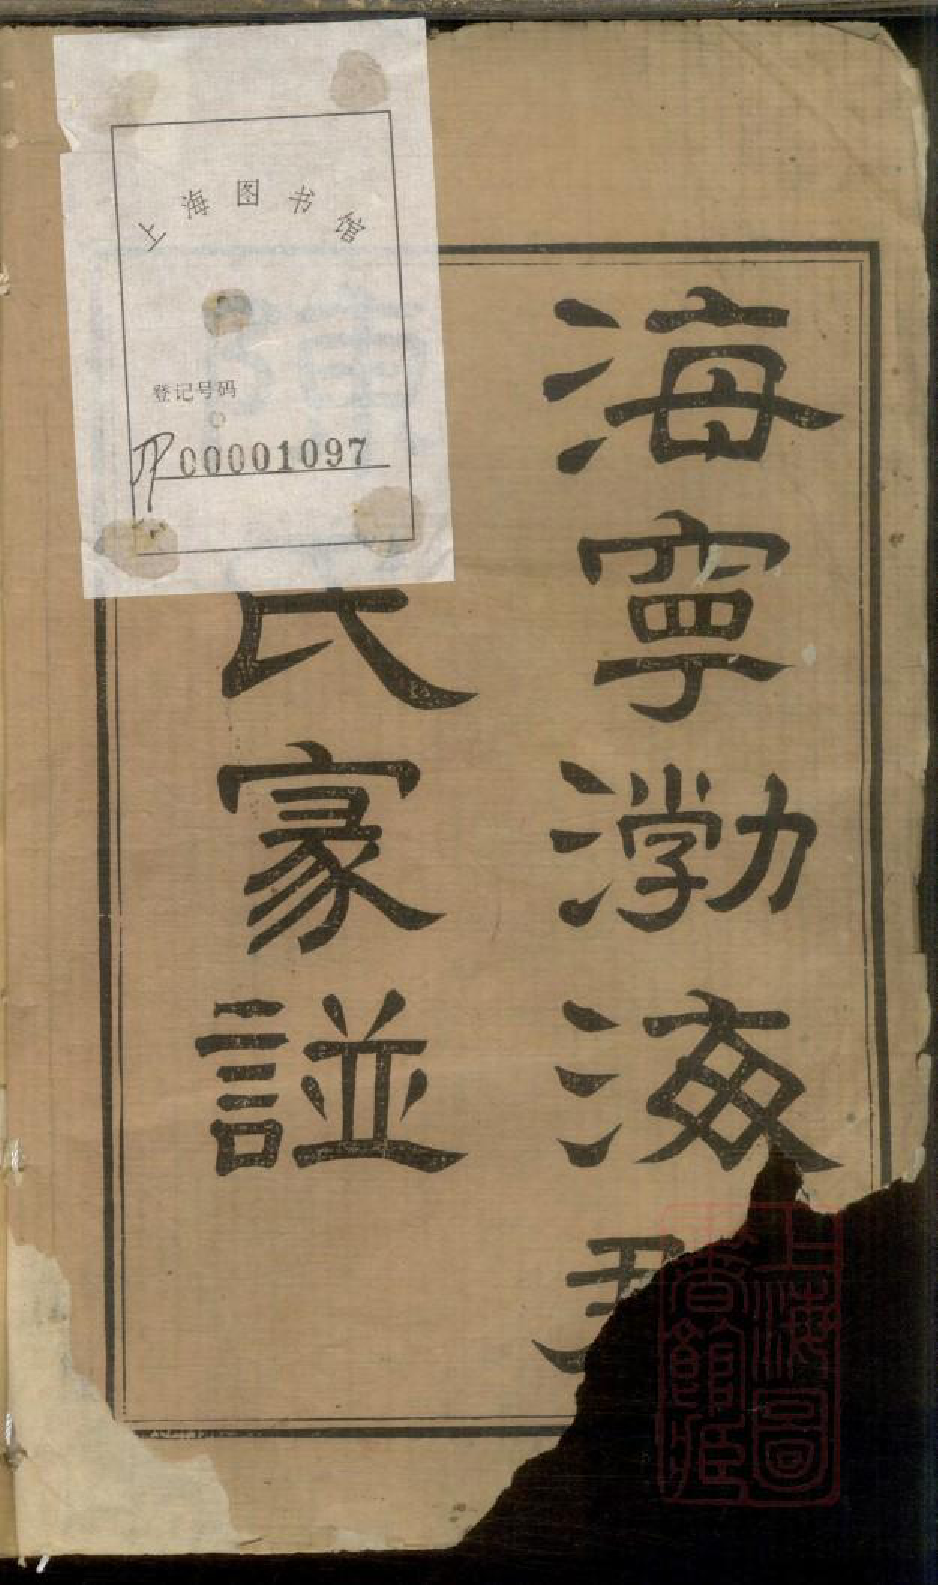 海寧渤海
氏家譜
上海图书馆
登记号码
00001097
上海圖
書館藏